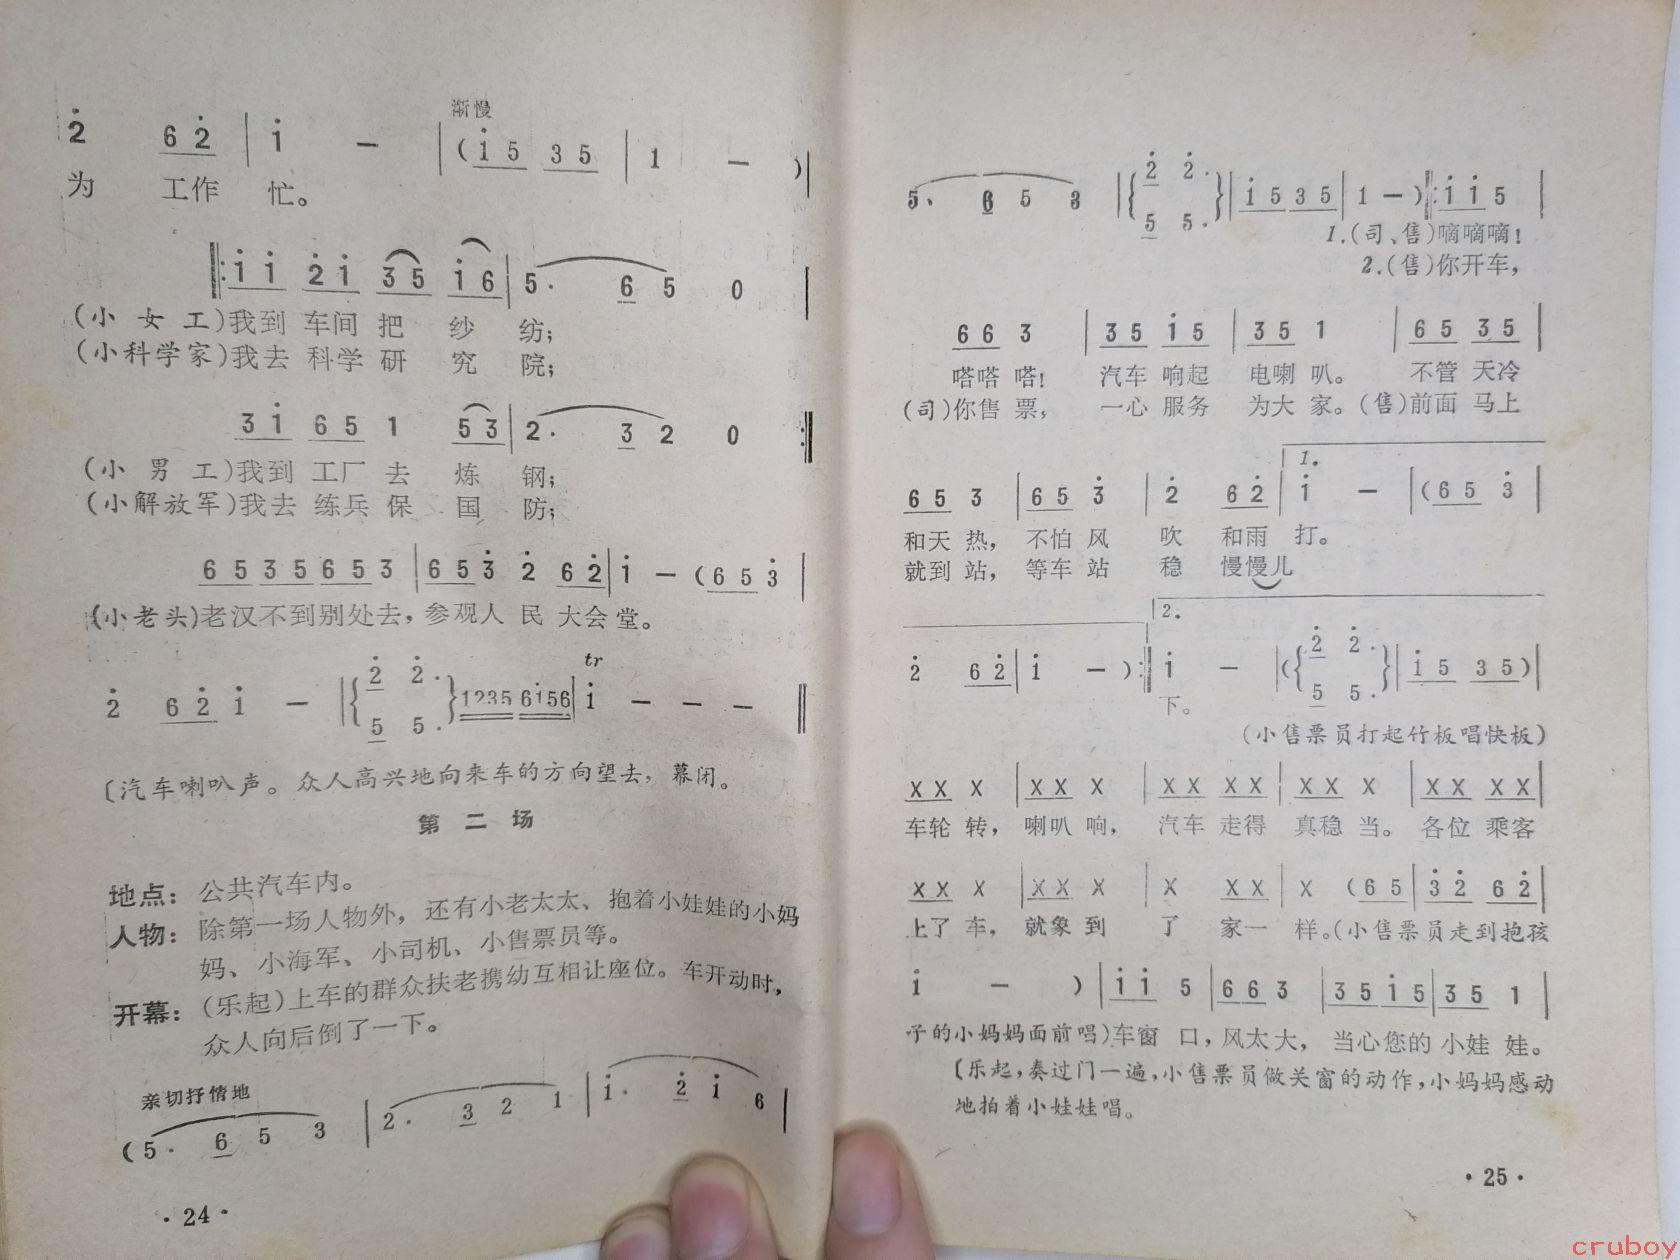 渐慢
2̇ 6 2̇ | 1̇ — | (1̇ 5 3 5 | 1 — )|
为 工作 忙。
‖: 1̇ 1̇ 2̇ 1̇ 3 5 1̇ 6 | 5· 6 5 0 |
(小女工)我到 车间 把 纱 纺;
(小科学家)我去 科学 研 究 院;
3 1̇ 6 5 1 5 3 | 2· 3 2 0 :‖
(小男工)我到 工厂 去 炼 钢;
(小解放军)我去 练兵 保 国 防;
6 5 3 5 6 5 3 | 6 5 3̇ 2̇ 6 2̇ | 1̇ — (6 5 3̇ |
(小老头)老汉不到别处去,参观人 民 大会 堂。
tr
2̇ 6 2̇ 1̇ — | { 2̇ 2̇· 5 5· } 1235 61̇56 | 1̇ — — — ‖
〔汽车喇叭声。众人高兴地向来车的方向望去,幕闭。
第 二 场
地点: 公共汽车内。
人物: 除第一场人物外,还有小老太太、抱着小娃娃的小妈
妈、小海军、小司机、小售票员等。
开幕: (乐起)上车的群众扶老携幼互相让座位。车开动时,
众人向后倒了一下。
亲切抒情地
(5· 6 5 3 | 2· 3 2 1 | 1̇· 2̇ 1̇ 6 |
·24·
5· 6 5 3 | { 2̇ 2̇· 5 5· } | 1̇ 5 3 5 | 1 — ) ‖: 1̇ 1̇ 5 |
1.(司、售)嘀嘀嘀!
2.(售)你开车,
6 6 3 | 3 5 1̇ 5 | 3 5 1 | 6 5 3 5 |
嗒嗒 嗒! 汽车 响起 电喇 叭。 不管 天冷
(司)你售 票, 一心 服务 为大 家。(售)前面 马上
1.
6 5 3 | 6 5 3̇ | 2̇ 6 2̇ | 1̇ — | (6 5 3̇ |
和天 热, 不怕 风 吹 和雨 打。
就到 站, 等车 站 稳 慢慢儿
2.
2̇ 6 2̇ | 1̇ — ) :‖ 1̇ — | ( { 2̇ 2̇· 5 5· } | 1̇ 5 3 5 ) |
下。
(小售票员打起竹板唱快板)
X X X | X X X | X X X X | X X X | X X X X |
车轮 转, 喇叭 响, 汽车 走得 真稳 当。 各位 乘客
X X X | X X X | X X X | X (6 5 | 3̇ 2̇ 6 2̇ |
上了 车, 就象 到 了 家一 样。(小售票员走到抱孩
1̇ — ) | 1̇ 1̇ 5 | 6 6 3 | 3 5 1̇ 5 | 3 5 1 |
子的小妈妈面前唱)车窗 口,风太大, 当心您的 小娃 娃。
〔乐起,奏过门一遍,小售票员做关窗的动作,小妈妈感动
地拍着小娃娃唱。
·25·
cruboy